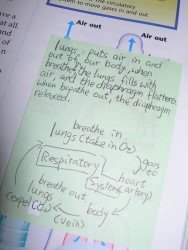 circulatory
own to move gases in and out
Air out
Air out
lungs - puts air in and
out of our body, when
breathe the lungs fills with
air, and the diaphragm flattens
when breathe out, the diaphragm
relaxed.
breathe in
lungs (take in O2)
goes
to
Respiratory
heart
System (artery)
breathe out
lungs
body
(expel CO2)
(vein)